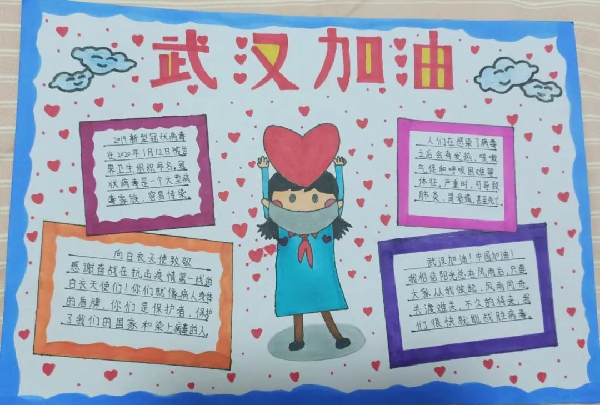 武汉加油
2019新型冠状病毒
在2020年1月12日被世
界卫生组织命名。冠
状病毒是一个大型病
毒家族,容易传染。
人们在感染了病毒
之后会有发热、咳嗽
气促和呼吸困难等
体征。严重时,可导致
肺炎,肾衰竭,甚至死亡
向白衣天使致敬
感谢奋战在抗击疫情第一线的
白衣天使们!你们就像病人身体
的盾牌,你们是保护者,保护
了我们的国家和染上病毒的人。
武汉加油!中国加油!
我相信阳光总在风雨后,只要
大家从我做起,风雨同舟,
共渡难关,不久的将来,我
们很快就能战胜病毒。